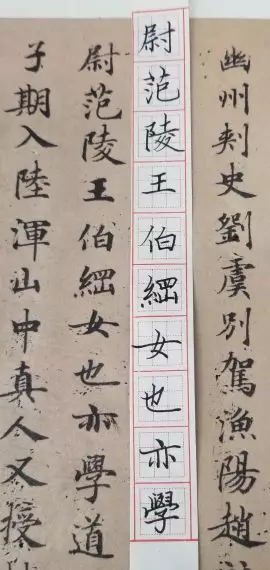 幽州刾史劉虞別駕漁陽趙
尉范陵王伯綱女也亦學
尉范陵王伯綱女也亦學道
子期入陸渾山中真人又授